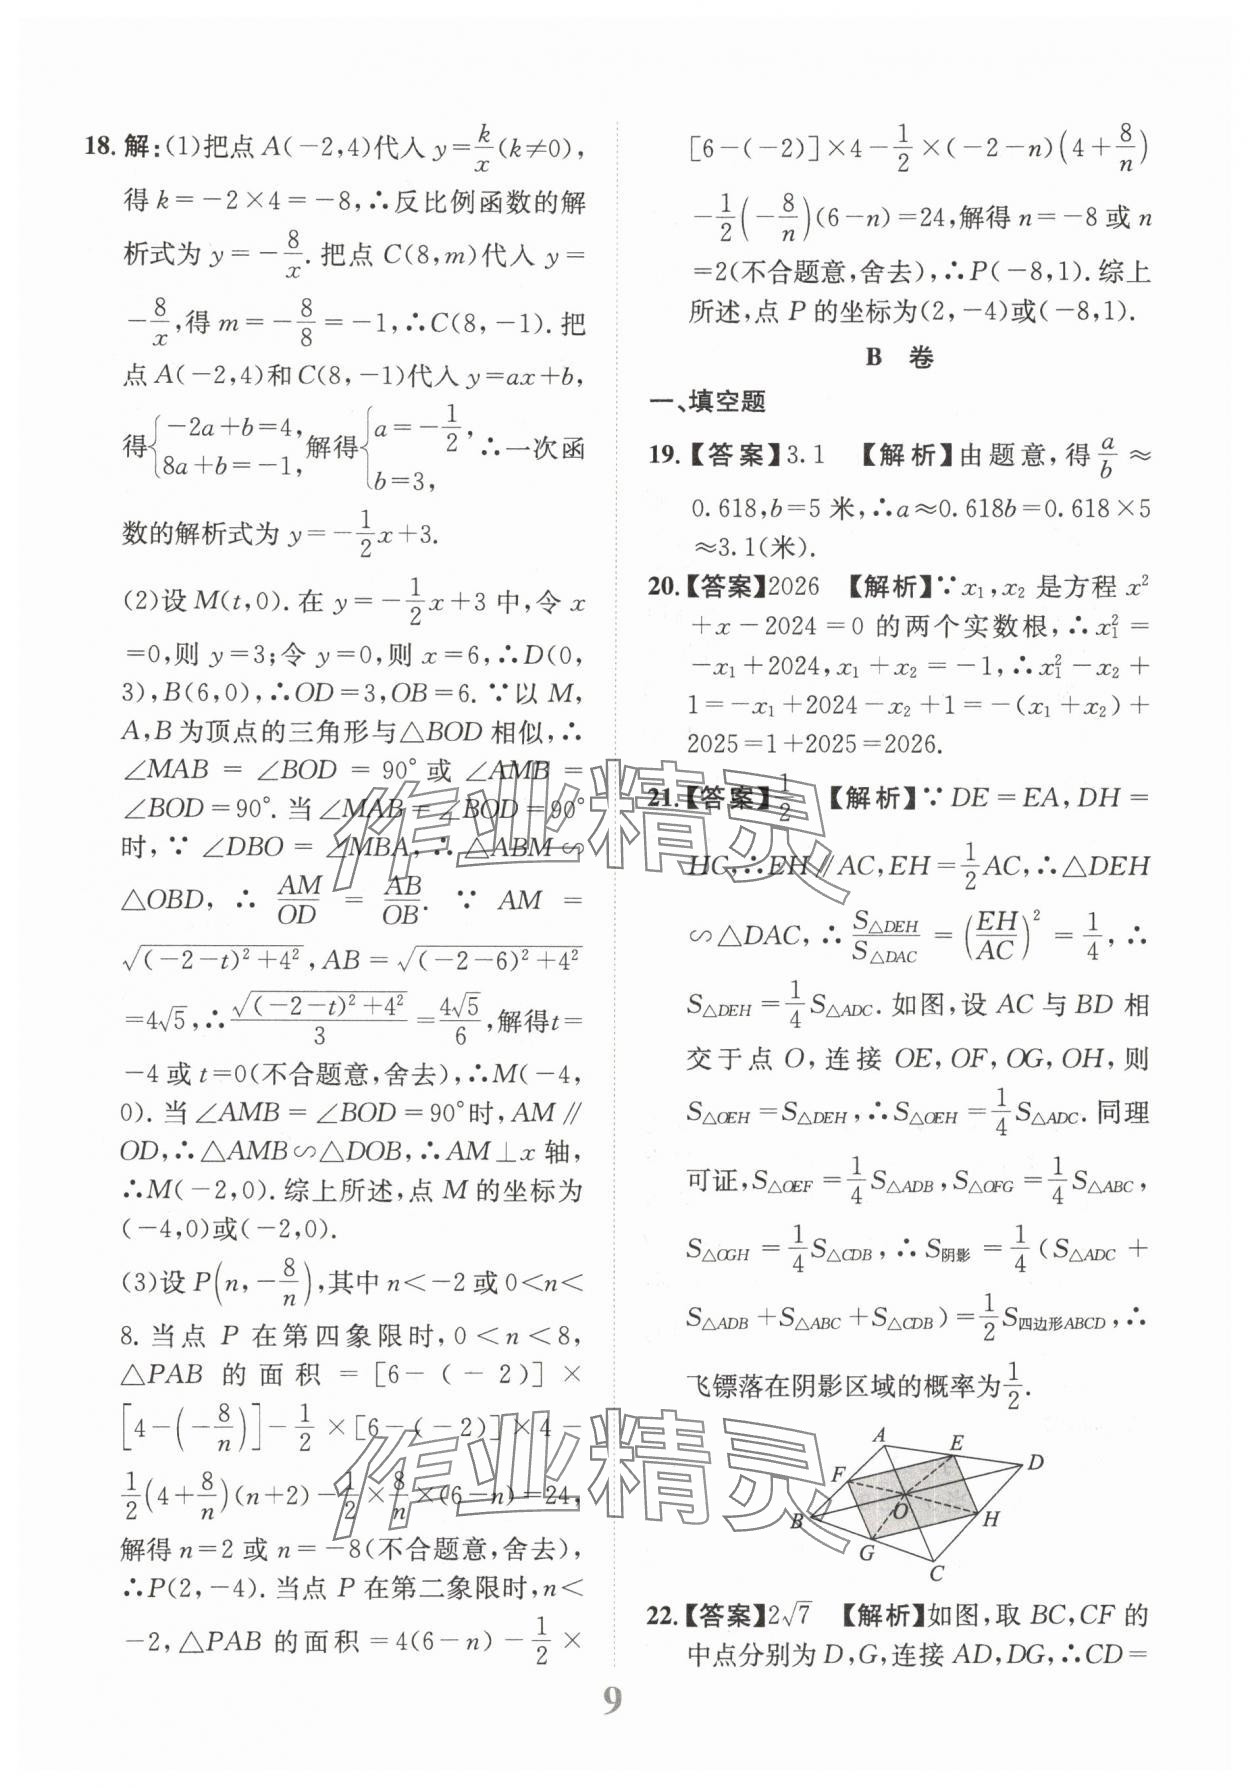 18. 解:(1)把点 A(-2,4)代入 y=k/x(k≠0),
得 k=-2×4=-8,∴反比例函数的解
析式为 y=-8/x. 把点 C(8,m)代入 y=
-8/x,得 m=-8/8=-1,∴C(8,-1). 把
点 A(-2,4)和 C(8,-1)代入 y=ax+b,
得{-2a+b=4, 8a+b=-1, 解得{a=-1/2, b=3, ∴一次函
数的解析式为 y=-1/2x+3.
(2)设 M(t,0). 在 y=-1/2x+3 中,令 x
=0,则 y=3;令 y=0,则 x=6,∴D(0,
3),B(6,0),∴OD=3,OB=6. ∵以 M,
A,B 为顶点的三角形与△BOD 相似,∴
∠MAB=∠BOD=90°或∠AMB=
∠BOD=90°. 当∠MAB=∠BOD=90°
时,∵∠DBO=∠MBA,∴△ABM∽
△OBD,∴AM/OD=AB/OB. ∵AM=
√((-2-t)²+4²),AB=√((-2-6)²+4²)
=4√5,∴√((-2-t)²+4²)/3=4√5/6,解得t=
-4 或 t=0(不合题意,舍去),∴M(-4,
0). 当∠AMB=∠BOD=90°时,AM∥
OD,∴△AMB∽△DOB,∴AM⊥x 轴,
∴M(-2,0). 综上所述,点 M 的坐标为
(-4,0)或(-2,0).
(3)设 P(n,-8/n),其中 n<-2 或 0<n<
8. 当点 P 在第四象限时,0<n<8,
△PAB 的面积=[6-(-2)]×
[4-(-8/n)]-1/2×[6-(-2)]×4-
1/2(4+8/n)(n+2)-1/2×8/n×(6-n)=24,
解得 n=2 或 n=-8(不合题意,舍去),
∴P(2,-4). 当点 P 在第二象限时,n<
-2,△PAB 的面积=4(6-n)-1/2×
[6-(-2)]×4-1/2×(-2-n)(4+8/n)
-1/2(-8/n)(6-n)=24,解得 n=-8 或 n
=2(不合题意,舍去),∴P(-8,1). 综上
所述,点 P 的坐标为(2,-4)或(-8,1).
B 卷
一、填空题
19.【答案】3.1 【解析】由题意,得 a/b≈
0.618,b=5 米,∴a≈0.618b=0.618×5
≈3.1(米).
20.【答案】2026 【解析】∵x₁,x₂ 是方程 x²
+x-2024=0 的两个实数根,∴x₁²=
-x₁+2024,x₁+x₂=-1,∴x₁²-x₂+
1=-x₁+2024-x₂+1=-(x₁+x₂)+
2025=1+2025=2026.
21.【答案】1/2 【解析】∵DE=EA,DH=
HC,∴EH∥AC,EH=1/2AC,∴△DEH
∽△DAC,∴S△DEH/S△DAC=(EH/AC)²=1/4,∴
S△DEH=1/4S△ADC. 如图,设 AC 与 BD 相
交于点 O,连接 OE,OF,OG,OH,则
S△OEH=S△DEH,∴S△OEH=1/4S△ADC. 同理
可证,S△OEF=1/4S△ADB,S△OFG=1/4S△ABC,
S△OGH=1/4S△CDB,∴S阴影=1/4(S△ADC+
S△ADB+S△ABC+S△CDB)=1/2S四边形ABCD,∴
飞镖落在阴影区域的概率为1/2.
A
E
D
F
O
B
H
G
C
22.【答案】2√7 【解析】如图,取 BC,CF 的
中点分别为 D,G,连接 AD,DG,∴CD=
9
作业精灵
作业精灵